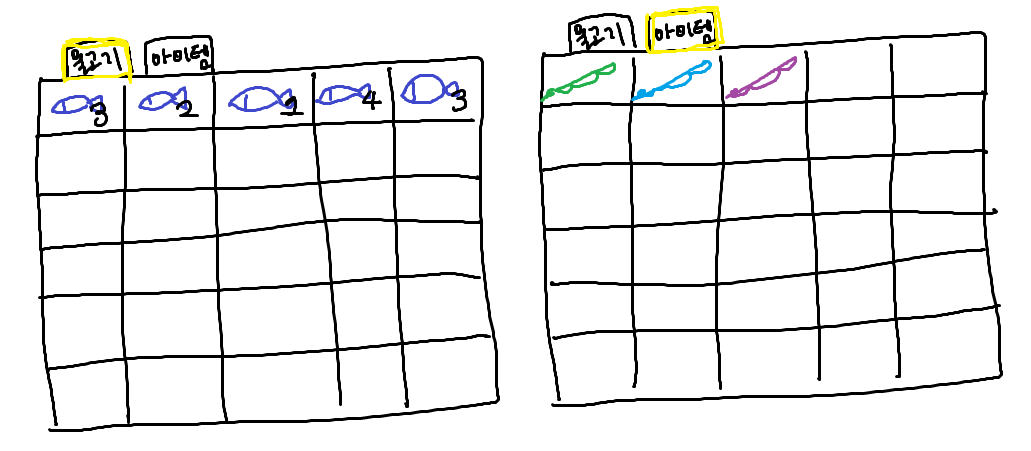 물고기 아이템
3 2 1 4 3
물고기 아이템